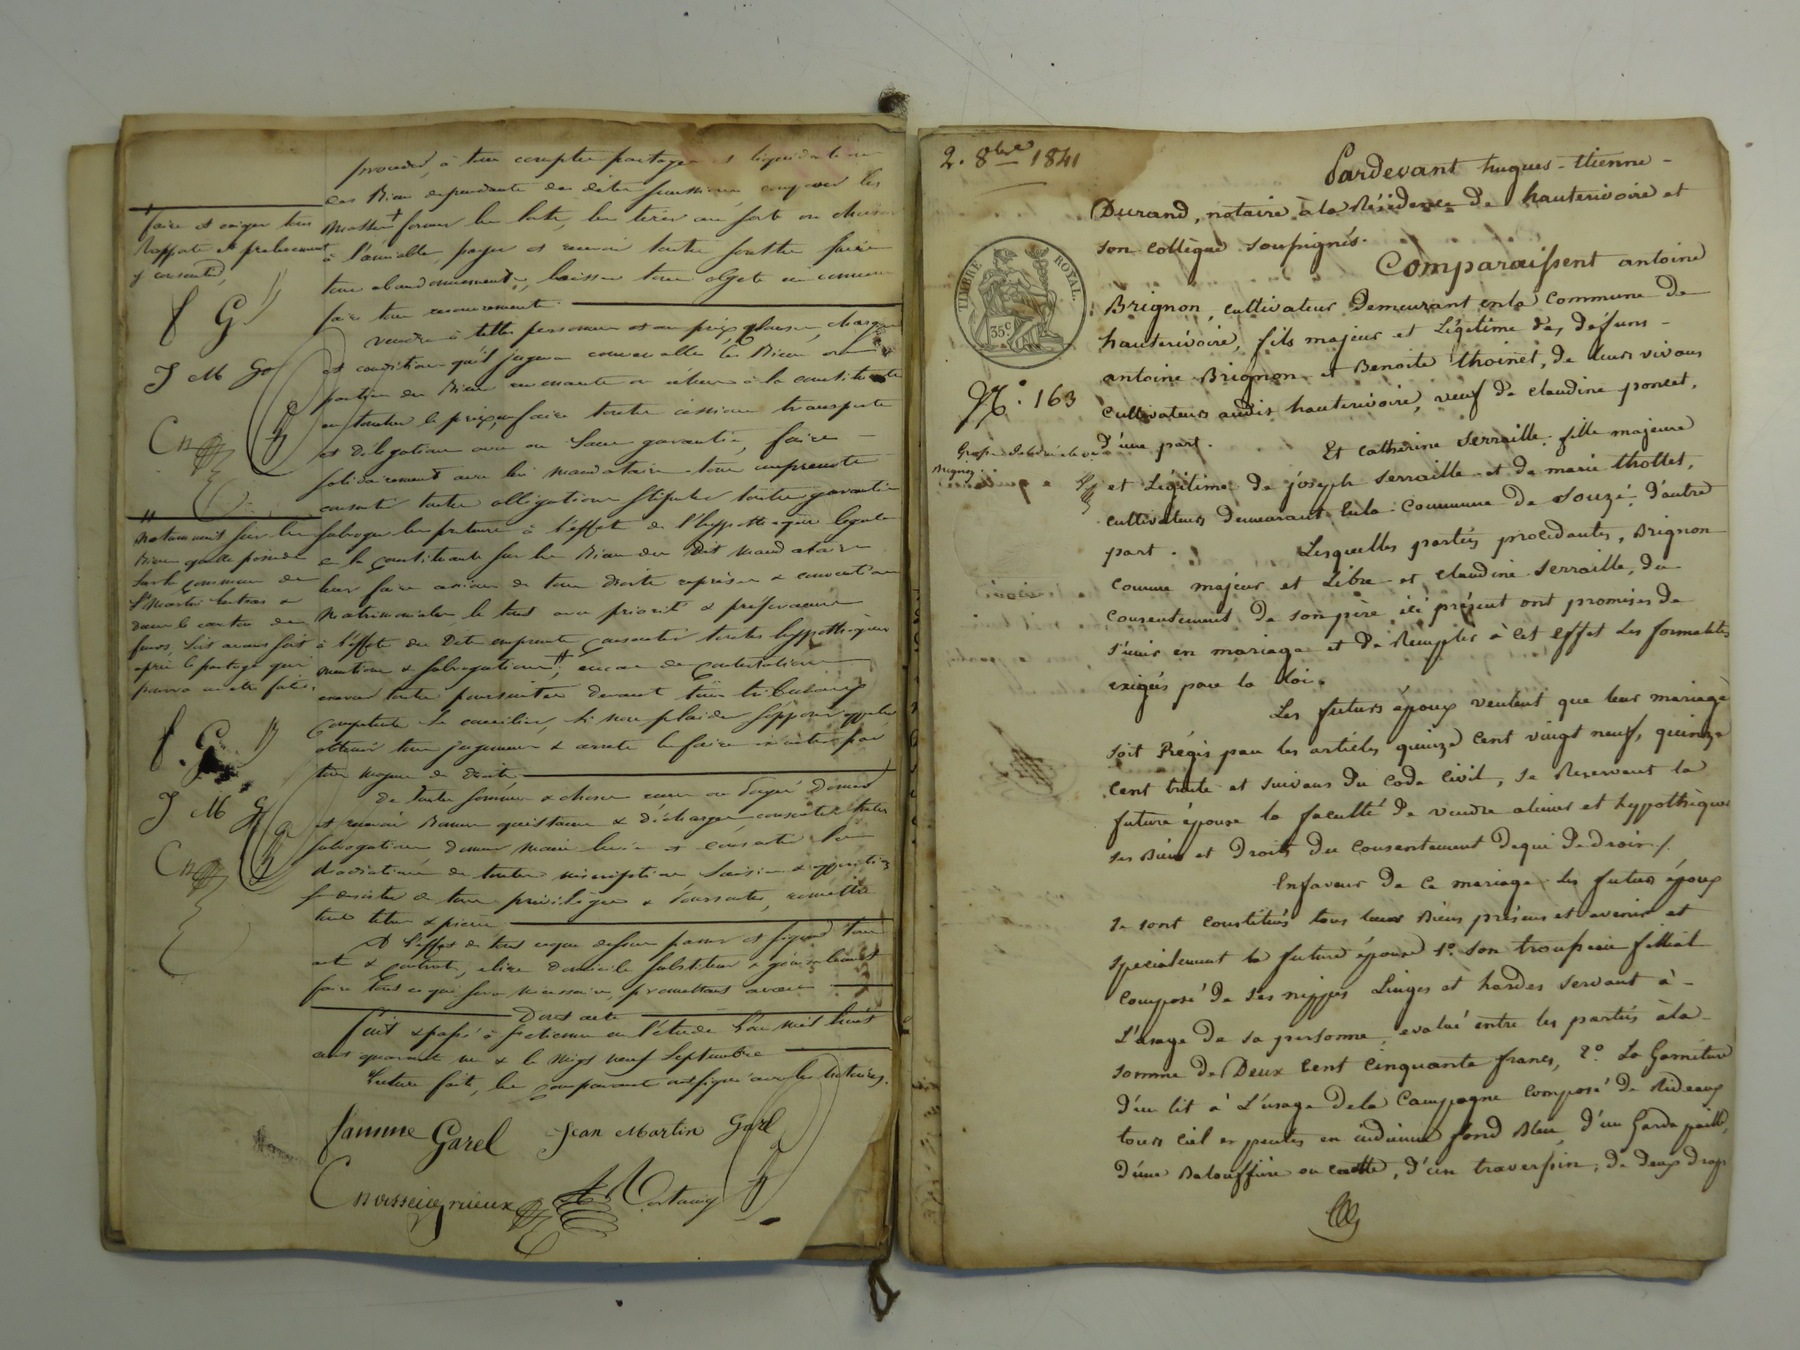 procéder, à tous comptes partages et liquidations
des Biens dépendants des dites successions composer les
Masses + former les lots, les tirer au sort ou choisir
à l'amiable, payer et recevoir toutes soultes faire
tous abandonnements, laisser tous objets en commun
faire tous
vendre à telles personnes et au prix, charges
et conditions qu'il jugera convenable les Biens ou
portion des Biens à la constituante
en toucher le prix, en faire toutes cessions transports
et délégations avec ou sans garantie, faire
solidairement avec les mandataires tous emprunts
consentir toutes obligations stipuler toutes garanties
subroger les prêteurs à l'effet de l'hypothèque légale
de la constituante sur les Biens du dit mandataire
leur faire cession de tous droits reprises & conventions
Matrimoniales, le tout avec priorité & préférence
à l'effet des dits emprunts consentir toutes hypothèques
mention & subrogation #, en cas de contestations
exercer toutes poursuites devant tous tribunaux
compétents se concilier, si non plaider s'opposer appeler
obtenir tous jugements & arrêts les faire exécuter par
tous moyens de droits
De toutes sommes & choses reçues ou payées donner
et recevoir Bonnes quittances & décharges consentir toutes
subrogations donner main levée et consentir la
Radiation de toutes inscriptions saisies & oppositions
se désister de tous privilèges & poursuites, remettre
tous titres & pièces
A l'effet de tout ce que dessus passer et signer tous
actes & contrats, élire domicile substituer & généralement
faire tout ce qui sera nécessaire, promettant avoir
Dont acte
fait & passé à en l'étude L'an mil huit
cent quarante un & le vingt neuf Septembre
Lecture faite, les comparants ont signé avec les Notaires.
faire et exiger tous
Rapports et prélèvements
y consentir,
f G
J M G
notamment sur les
Biens qu'elle possède
sur la commune de
St Martin &
dans le canton de
feurs, soit avant soit
après le partage qui
pourra en être fait.
f. G
J M G
fanme Garel Jean Martin Garel
2. 8bre 1841
TIMBRE ROYAL.
35 c.
N.° 163
Pardevant hugues-Etienne-
Durand, notaire à la Résidence de hauterivoire et
son collègue soussignés.
Comparaissent antoine
Brignon, cultivateur Demeurant en la Commune de
hauterivoire, fils majeur et Légitime des défuns-
antoine Brignon et Benoite thoinet, de leurs vivans
cultivateurs audit hauterivoire, veuf de claudine poncet,
d'une part.
Et catherine Serraille, fille majeure
et Légitime de joseph Serraille et de marie thollet,
cultivateurs demeurant en la Commune de Souzé d'autre
part.
Lesquelles parties procédantes, Brignon
comme majeur et Libre et claudine Serraille, du
consentement de son père ici présent ont promis de
s'unir en mariage et de Remplir à cet effet Les formalités
exigées par la Loi.
Les futurs époux veulent que leur mariage
soit Régis par les articles quinze cent vingt neuf, quinze
cent trente et suivans du Code Civil, se Reservant la
future épouse la faculté de vendre aliéner et hypothéquer
ses Biens et Droits du consentement De qui De droit./.
En faveur de ce mariage les futurs époux
se sont constitués tous leurs Biens présens et avenir et
specialement la future épouse 1° son trousseau fillial
composé de ses nippes Linges et hardes servant à-
L'usage de sa personne, evalué entre les parties à la-
somme de Deux cent cinquante francs, 2° La Garniture
d'un lit à L'usage De la Campagne composé de Rideaux
tours ciel et pentes en indienne fond Bleu, d'un Garde paille,
d'une Balouffière ou couette, d'un traversin, de deux draps